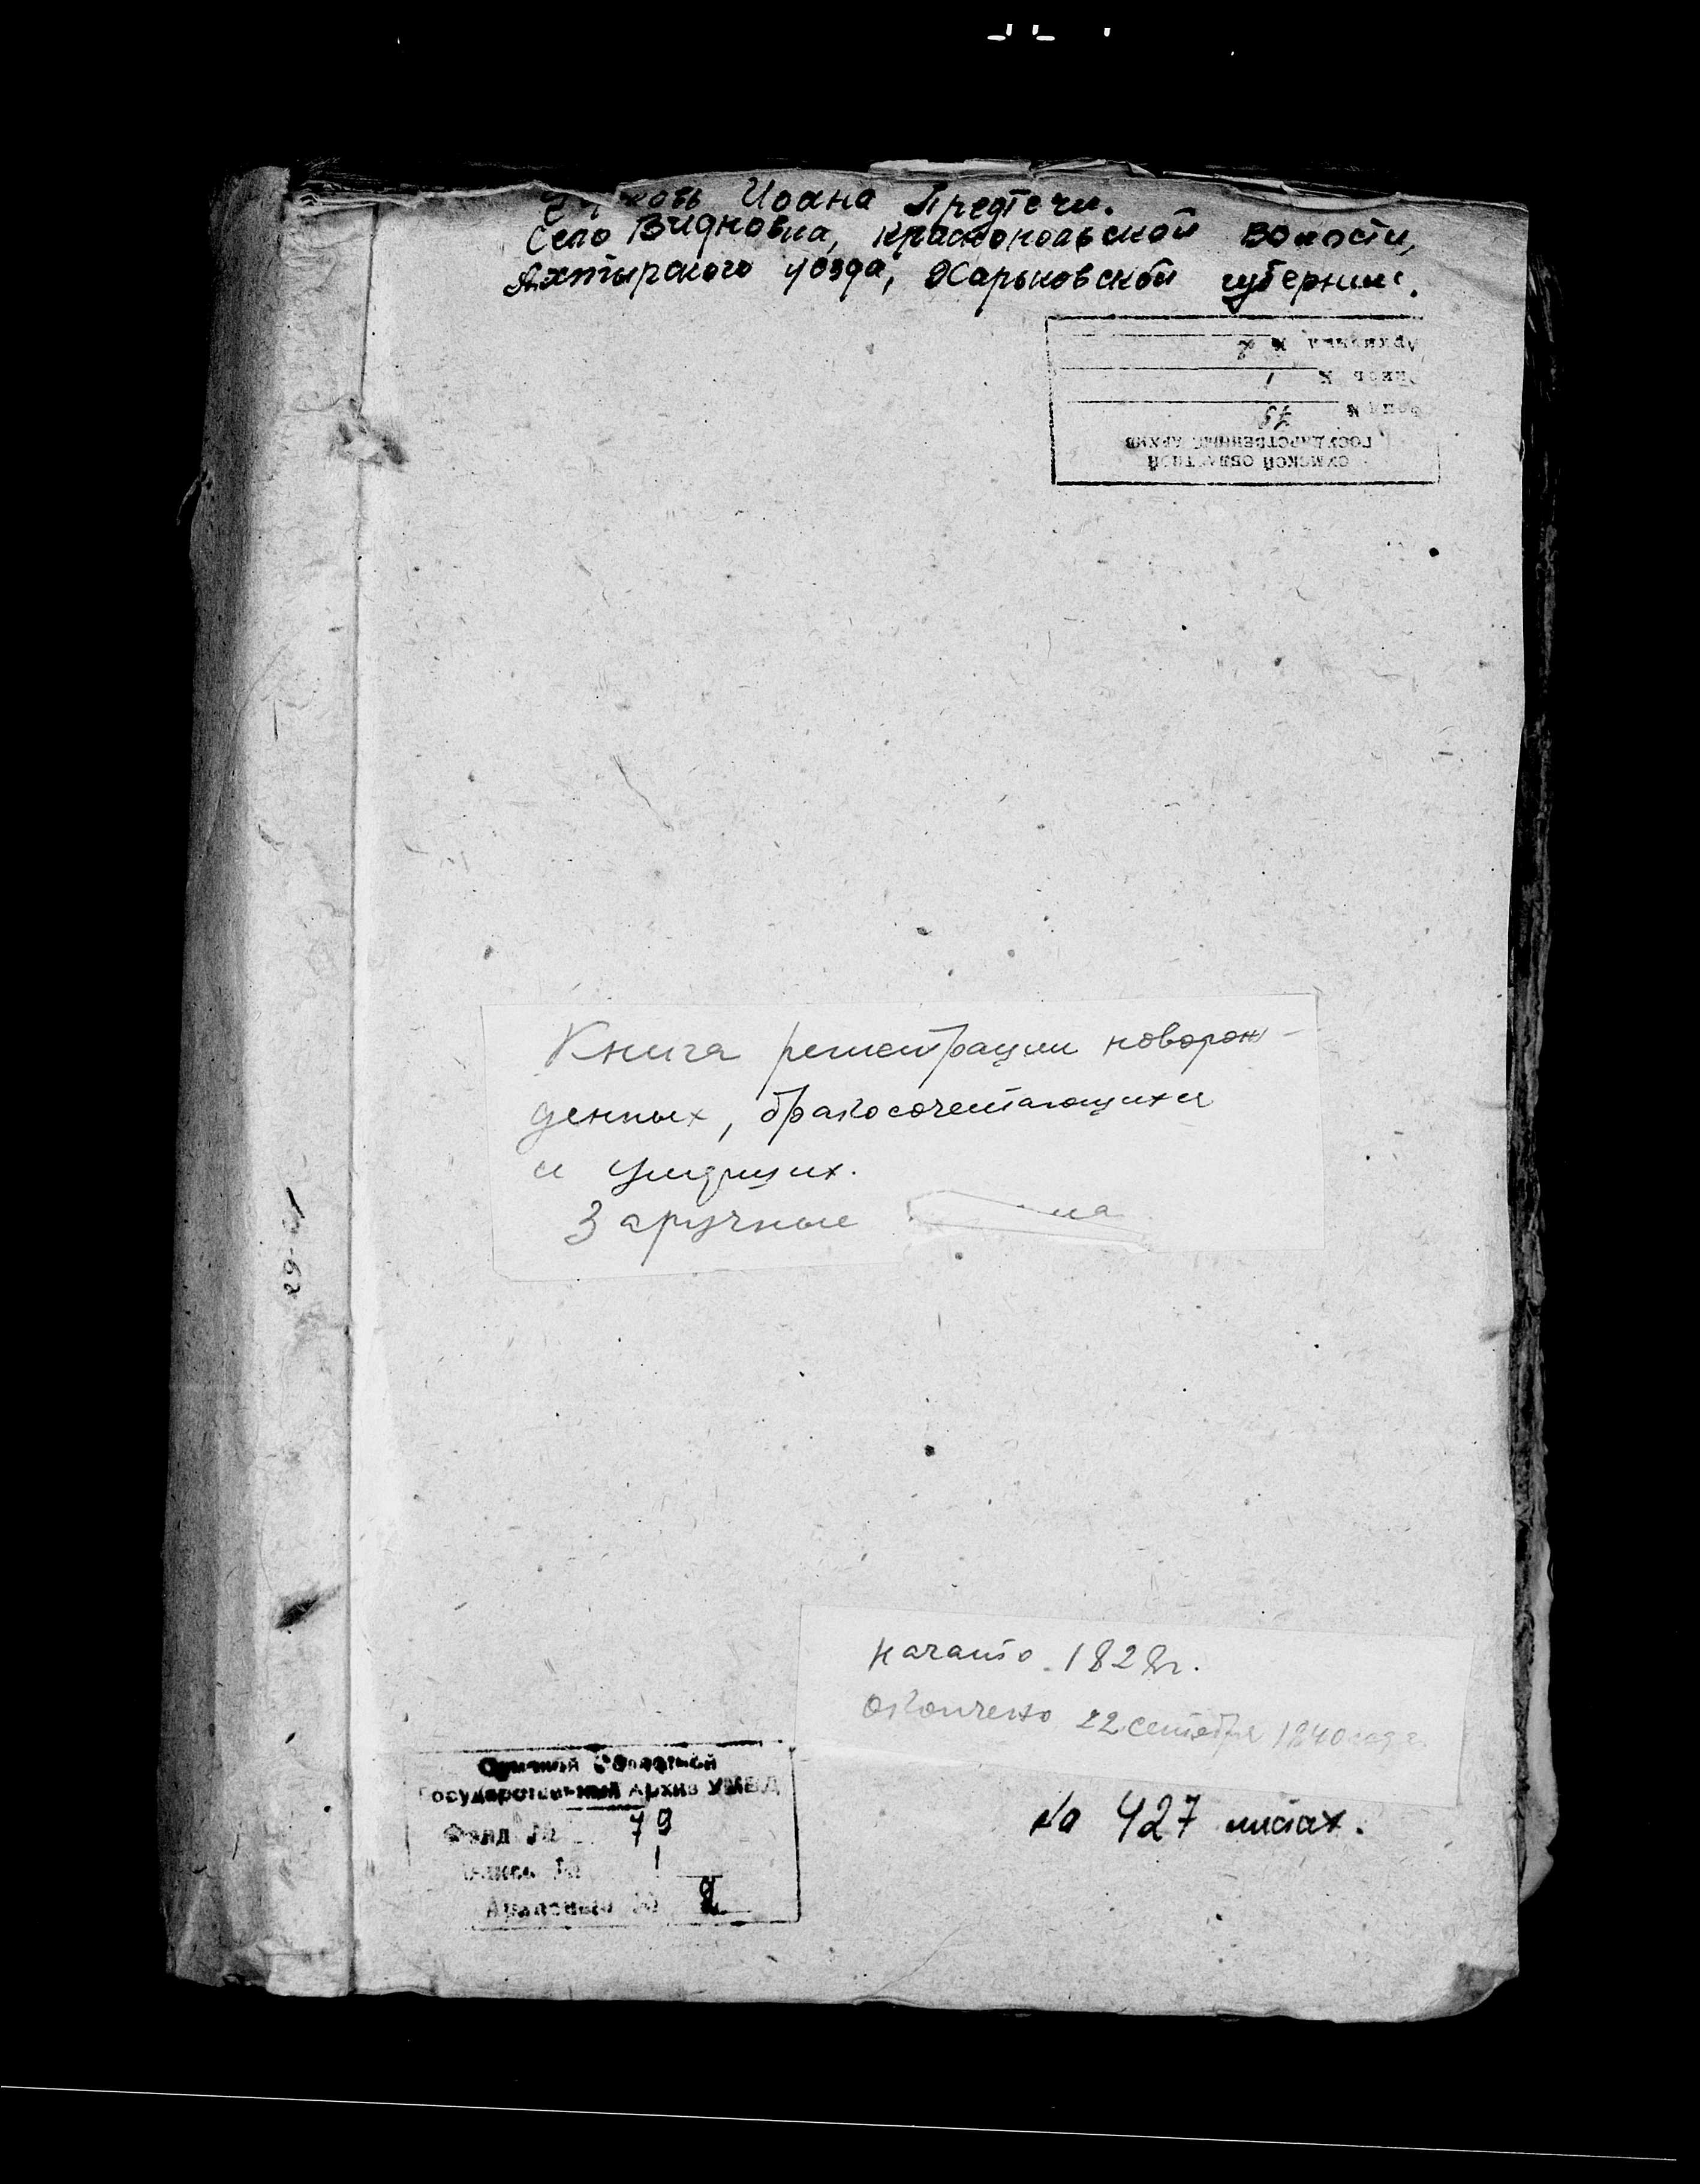 Церковь Иоана Предтечи.
Село Видновка, Краснопольской Волости,
Ахтырского уезда, Харьковской губернии.
СУМСКОЙ ОБЛАСТНОЙ
ГОСУДАРСТВЕННЫЙ АРХИВ
Фонд № 79
Опись № 1
Архивный №
Книга регистрации новорож-
денных, бракосочетающихся
и умерших.
Заручные
Начато 1828г.
Окончено 22 сентября 1840 года
На 427 листах.
Сумский Областной
Государственный Архив УМВД
Фонд № 79
Опись № 1
Архивный № 2